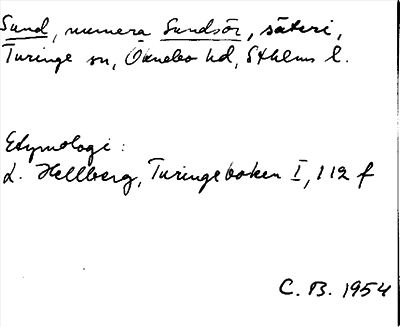 Sund, numera Sundsör, säteri,
Turinge sn, Öknebo hd, Sthlms l.
Etymologi:
L. Hellberg, Turingeboken I, 112 f
C. B. 1954